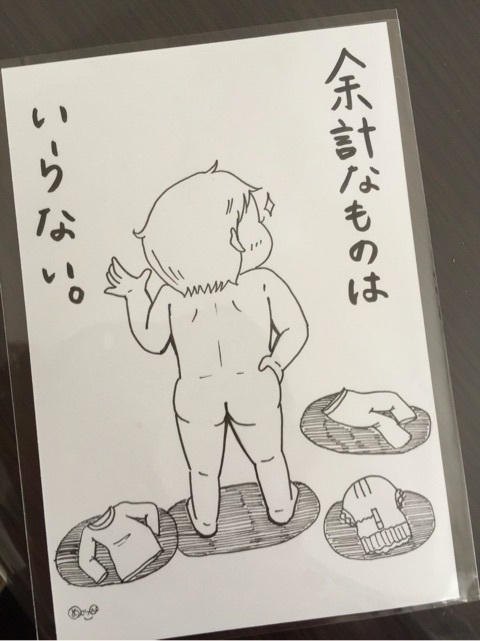 余計なものは
いらない。